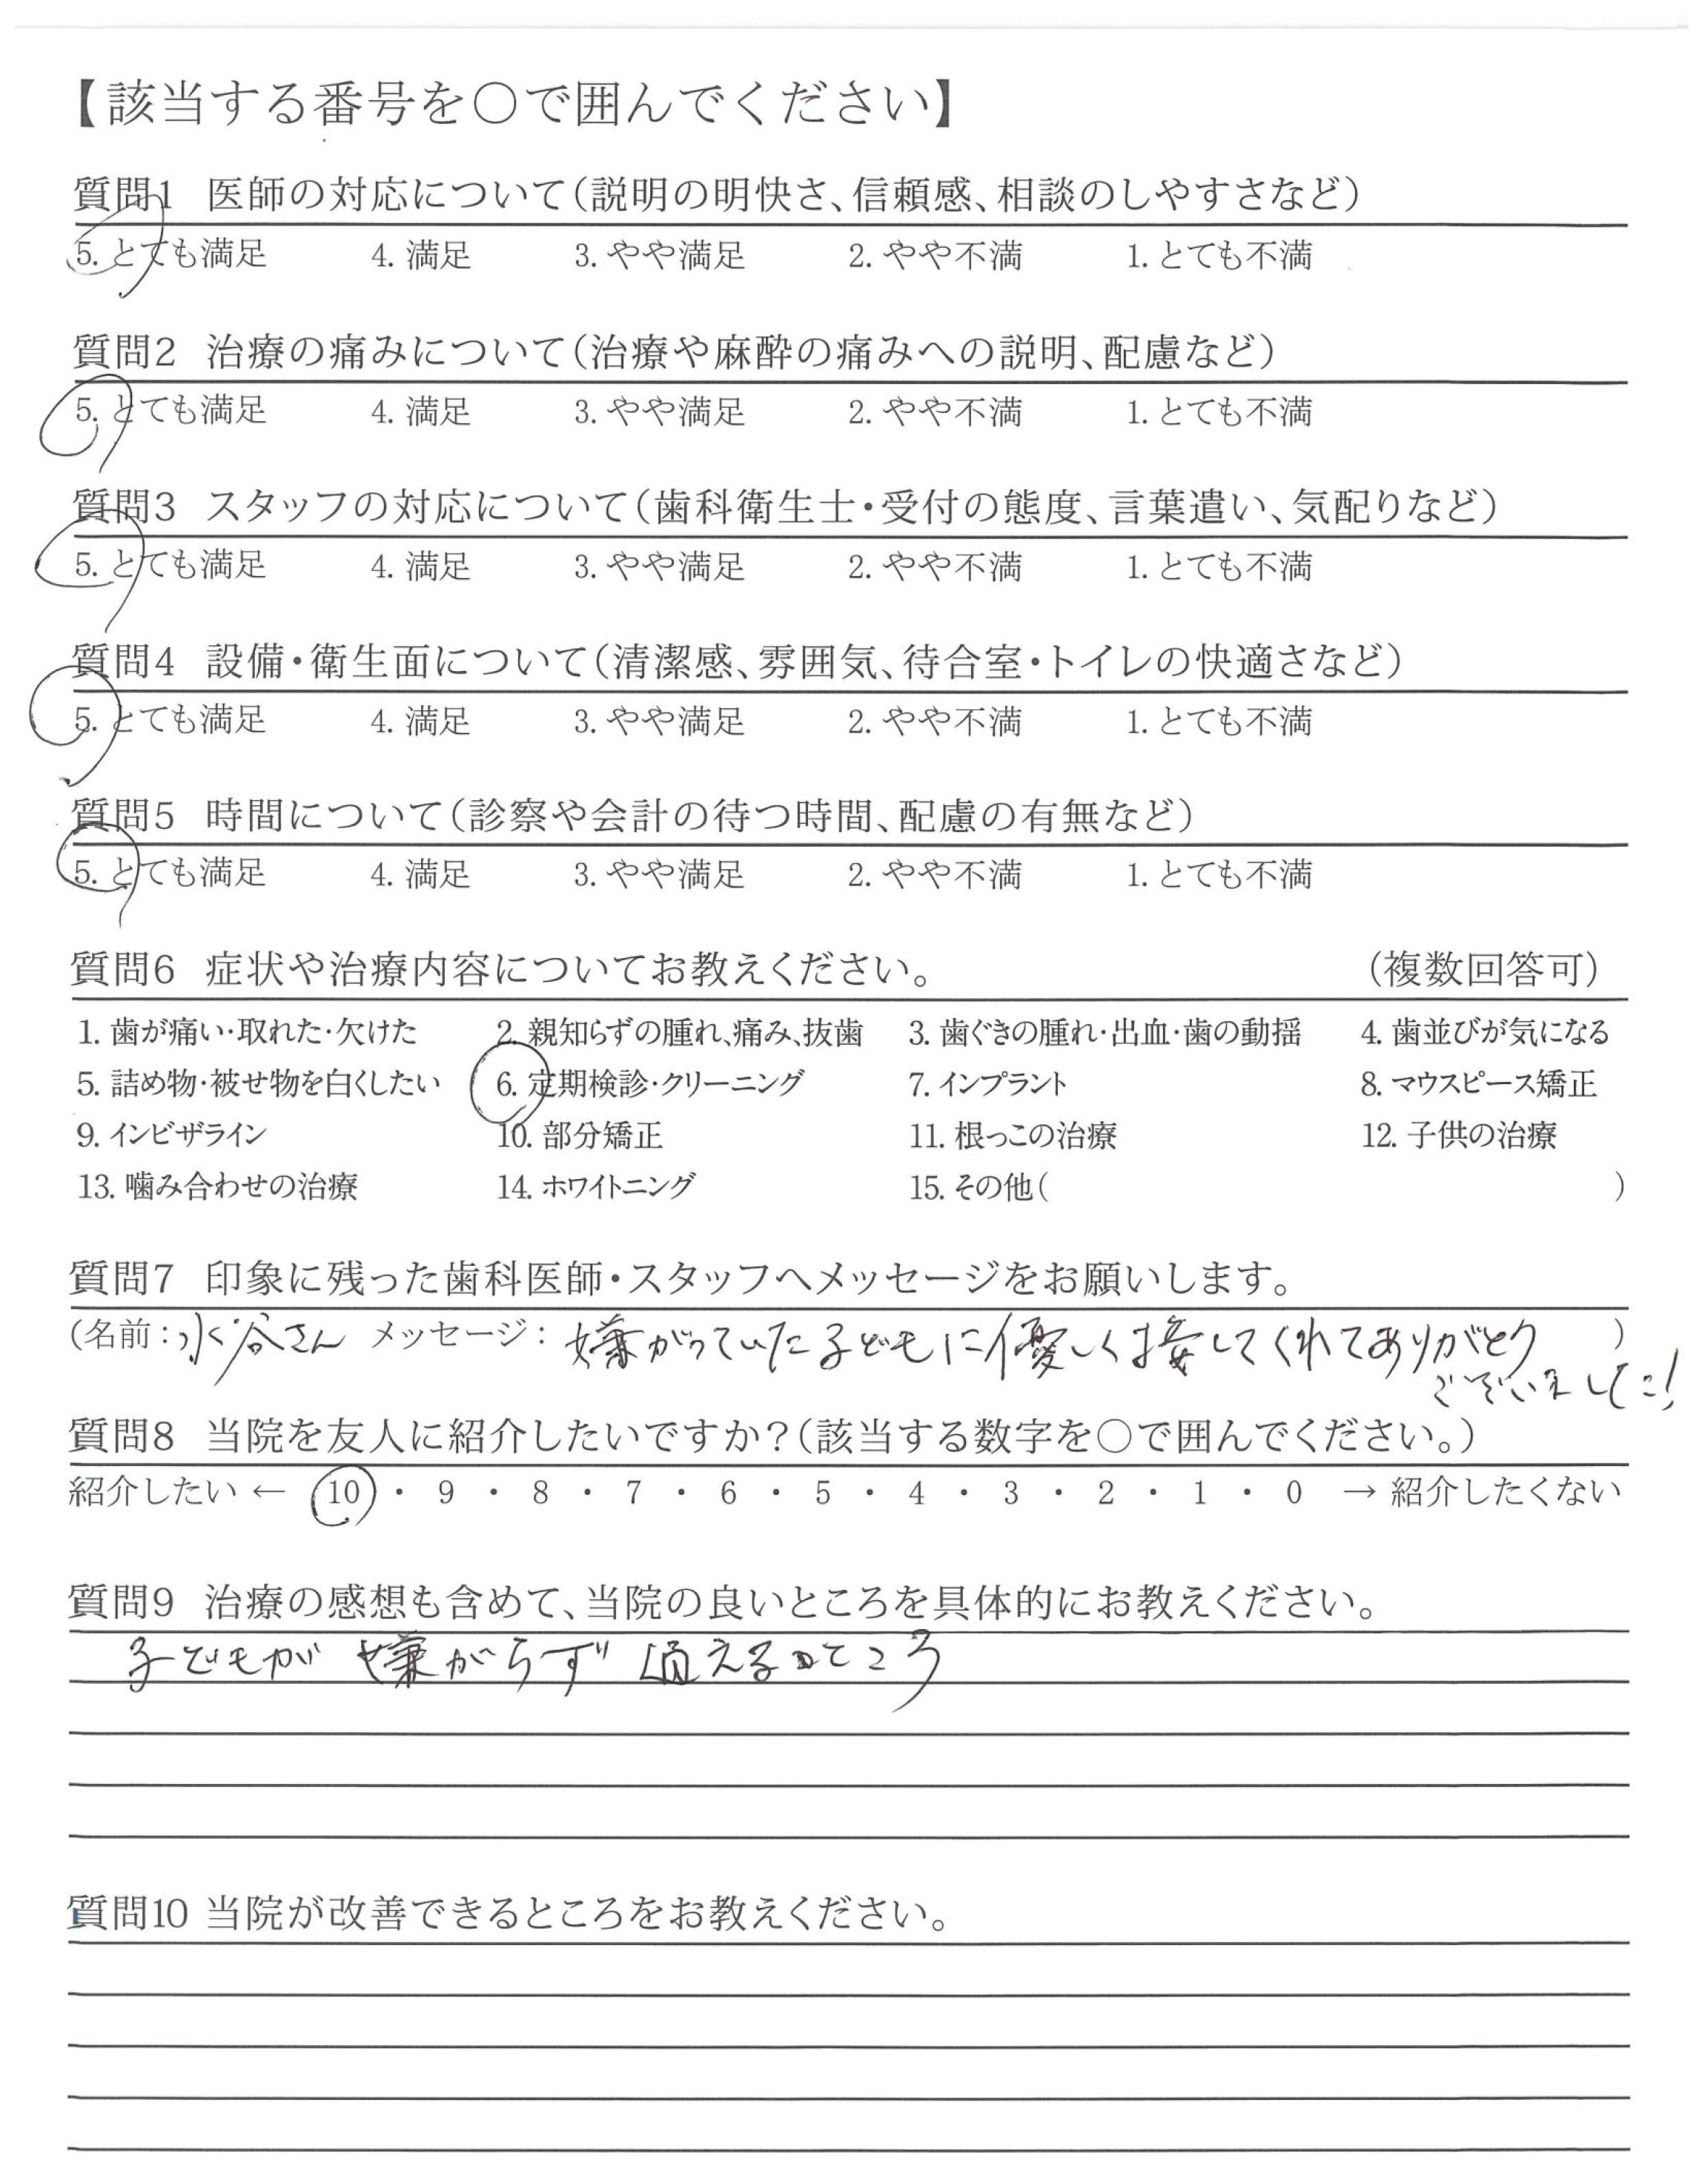 【該当する番号を○で囲んでください】
質問1 医師の対応について(説明の明快さ、信頼感、相談のしやすさなど)
5. とても満足 4. 満足 3. やや満足 2. やや不満 1. とても不満
質問2 治療の痛みについて(治療や麻酔の痛みへの説明、配慮など)
5. とても満足 4. 満足 3. やや満足 2. やや不満 1. とても不満
質問3 スタッフの対応について(歯科衛生士・受付の態度、言葉遣い、気配りなど)
5. とても満足 4. 満足 3. やや満足 2. やや不満 1. とても不満
質問4 設備・衛生面について(清潔感、雰囲気、待合室・トイレの快適さなど)
5. とても満足 4. 満足 3. やや満足 2. やや不満 1. とても不満
質問5 時間について(診察や会計の待つ時間、配慮の有無など)
5. とても満足 4. 満足 3. やや満足 2. やや不満 1. とても不満
質問6 症状や治療内容についてお教えください。 (複数回答可)
1. 歯が痛い・取れた・欠けた 2. 親知らずの腫れ、痛み、抜歯 3. 歯ぐきの腫れ・出血・歯の動揺 4. 歯並びが気になる
5. 詰め物・被せ物を白くしたい 6. 定期検診・クリーニング 7. インプラント 8. マウスピース矯正
9. インビザライン 10. 部分矯正 11. 根っこの治療 12. 子供の治療
13. 噛み合わせの治療 14. ホワイトニング 15. その他( )
質問7 印象に残った歯科医師・スタッフへメッセージをお願いします。
(名前：水谷さん メッセージ：嫌がっていた子どもに優しく接してくれてありがとう )
ございました!
質問8 当院を友人に紹介したいですか?(該当する数字を○で囲んでください。)
紹介したい ← 10 ・ 9 ・ 8 ・ 7 ・ 6 ・ 5 ・ 4 ・ 3 ・ 2 ・ 1 ・ 0 → 紹介したくない
質問9 治療の感想も含めて、当院の良いところを具体的にお教えください。
子どもが嫌がらず通えるところ
質問10 当院が改善できるところをお教えください。